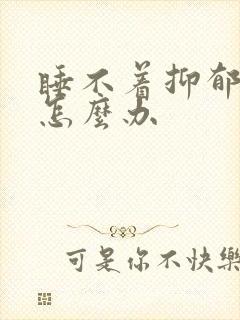 睡不着抑郁
怎麽办
可是你不快樂